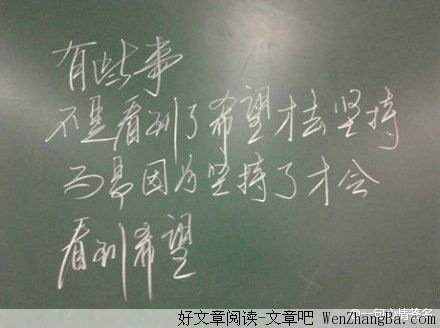 有些事
不是看到了希望才去坚持
而是因为坚持了才会
看到希望
一句心情签名
好文章阅读-文章吧 WenZhangBa.com